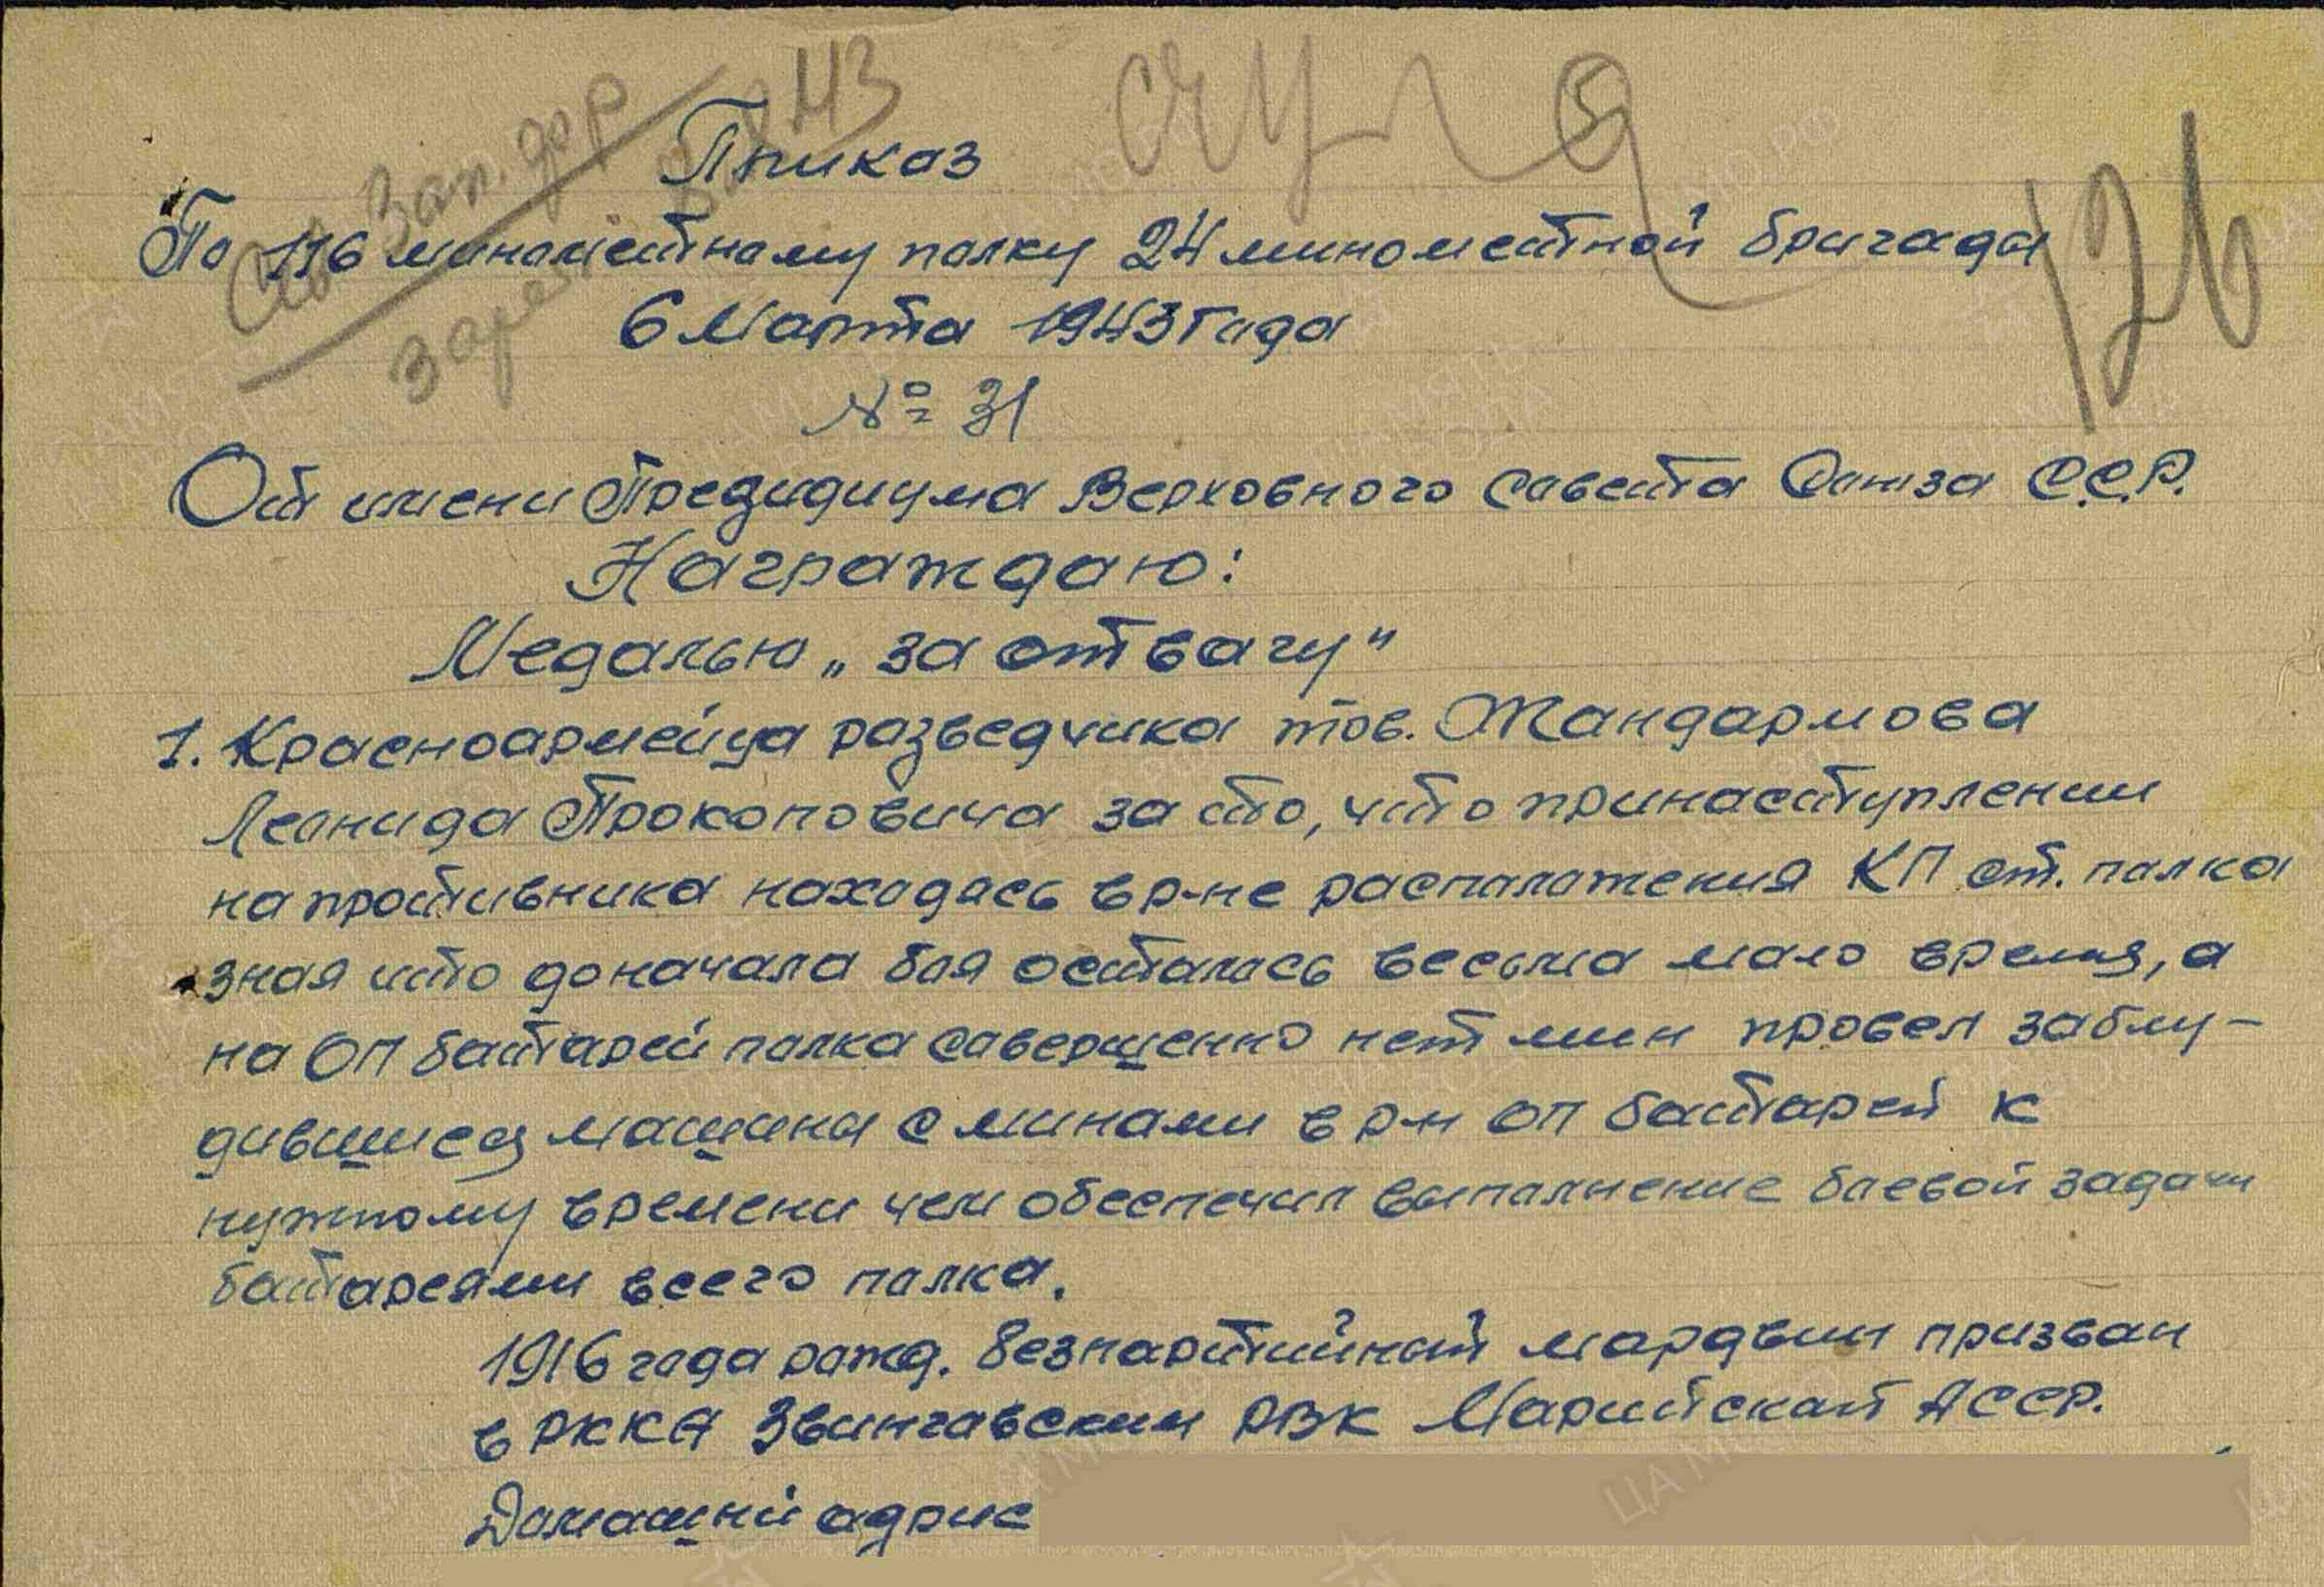 Приказ
По 116 минометному полку 24 минометной бригады
6 Марта 1943 года
№ 31
От имени Президиума Верховного Совета Союза С.С.Р.
Награждаю:
Медалью „за отвагу"
1. Красноармейца разведчика тов. Жандармова
Леонида Прокоповича за то, что принаступлении
на противника находясь в р-не расположения КП от. полка
зная что доначала боя осталось весьма мало время, а
на ОП батарей полка совершенно нет мин провел заблу-
дившиеся машины с минами в р-н ОП батарей к
нужному времени чем обеспечил выполнение боевой задачи
батареями всего полка.
1916 года рожд. безпартийный мордвин призван
в РККА Звинговским РВК Марийской АССР.
Домашний адрис
126